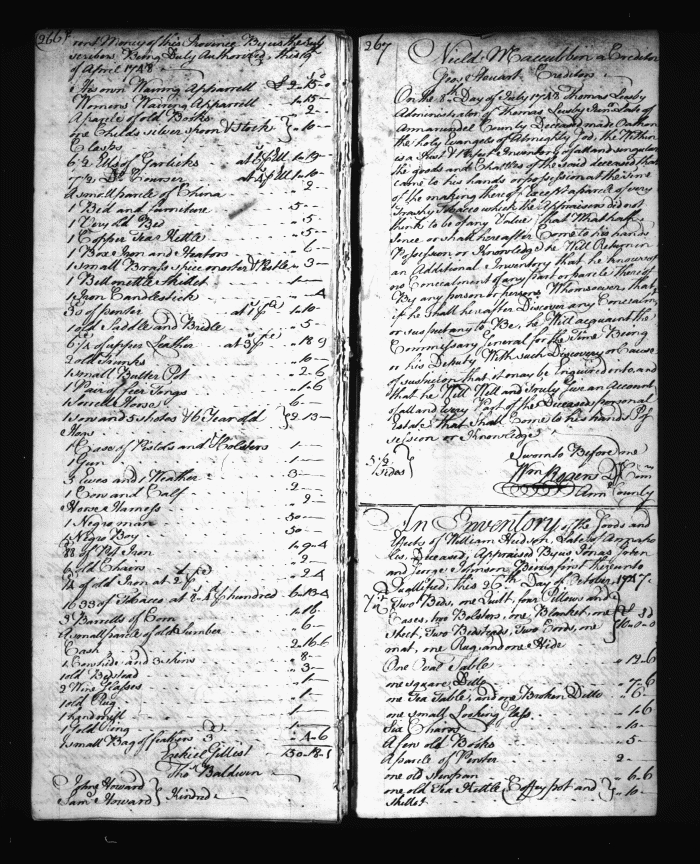 266
rent Money of this Province By us the Sub
scribers Being Duly Authorized this 19
of April 1748
His own Waring Apparrell £ 2-15-0
Womens Waring Apparrill 1-15-
A parcle of old Books 2
one Childs silver spoon & Stock
Clasps } -10-
6½ Ells of Garlicks at
at
A small parcle of China 2
1 Bed and furniture 5
1 Very old Bed 5
1 Copper Tea Kettle 5
1 Box Iron and Heators 6
1 small Brass spice morter & Pestle 3
1 Bellmettle Skillet 1
1 Iron Candlestick 4
30 of pewter at 1-10-
1 old Saddle and Bridle 5
of upper Leather at 18 9
2 old Trunks 10
1 small Butter Pot 2-6
1 Pair of fier Tongs 1-6
1 Sorrell Horse 6
1 Sow and 5 shotes & 6 Year old
Hogs } 2-13-
1 Case of Pistols and Holsters 1
1 Gun 1
5 Ewes and 1 Weather 3
1 Cow and Calf 2
Horse Harness 2
1 Negro man 50
1 Negro Boy 30
88 of Pot Iron 1-9-4
6 old Chairs 2
of old Iron at 2 2-4
1633 of Tobacco at 8-4 p hundred 6-13-4
3 Barrills of Corn 1-16-
A small parcle of old Lumber 6
Cash 2-16-6
1 Cowhide and 3 skins 8
1 old Bedstead 3
2 Wine Glasses 1
1 old Rug 1
1 handmill 1
1 old 1
1 small Bag of feathers 3 4-6
Ezekiel Gillist 130-18-1
Tho Baldwin
John Howard
Sam Howard } Kindred
267
Nield Maccubbin a Creditor
Geo Steuart Creditor
On the 8th Day of July 1748 Thomas Lusby
Administrator of Thomas Lusby Junr Late of
Annarundel County Deceased made Oath on
the holy Evangels of Almighty God, the Within
is a Just & Perfect Inventory of all and singular
the goods and Chattles of the said deceased that
came to his hands or possession at the time
of the making thereof Except a parcle of very
Trashy Tobacco which the Appraisers did not
think to be of any Value that What hath
sence or shall hereafter Come to his hands
Possession or Knowledge he Will Return in
an Additional Inventory that he knows of
no Concealment of any Part or parcle thereof
By any person or persons Whomsoever that
if he shall hereafter Discover any Concealm
or suspect any to Be, he Will acquaint the
Commissary General for the Time Being
or his Deputy With such Discovery or Cause
of suspicion that it may be Enquired into and
that he Will Well and Truly give an Account
of all and every Part of the Deceased personal
Estate that Shall Come to his hands Pos
session or Knowledge
Sworn to Before me
5½
sides } Wm Rogers D Com
Ann County
An Inventory of the Goods and
Effects of William Hudson Late of Annapo
lis, Deceased, Appraised By us Jonas Green
and George Johnson Being first thereunto
Qualified, this 26th Day of October 1747
Two Beds, one Quilt, four Pillows and
Cases, two Bolsters, one Blanket, one
Sheet, Two Bedsteds, Two Cords, one
mat, one Rug, and one Hide } 10-0-0
One Oval Table 12-6
one square Ditto 7-6
one Tea Table, and one Broken Ditto 6-
one small Looking Glass 1-6
Six Chairs 10
A few old Books 5
A parcle of Pewter 2-
one old Stewpan 6-6
one old Tea Kettle Coffey pot and
Skillet } 10-